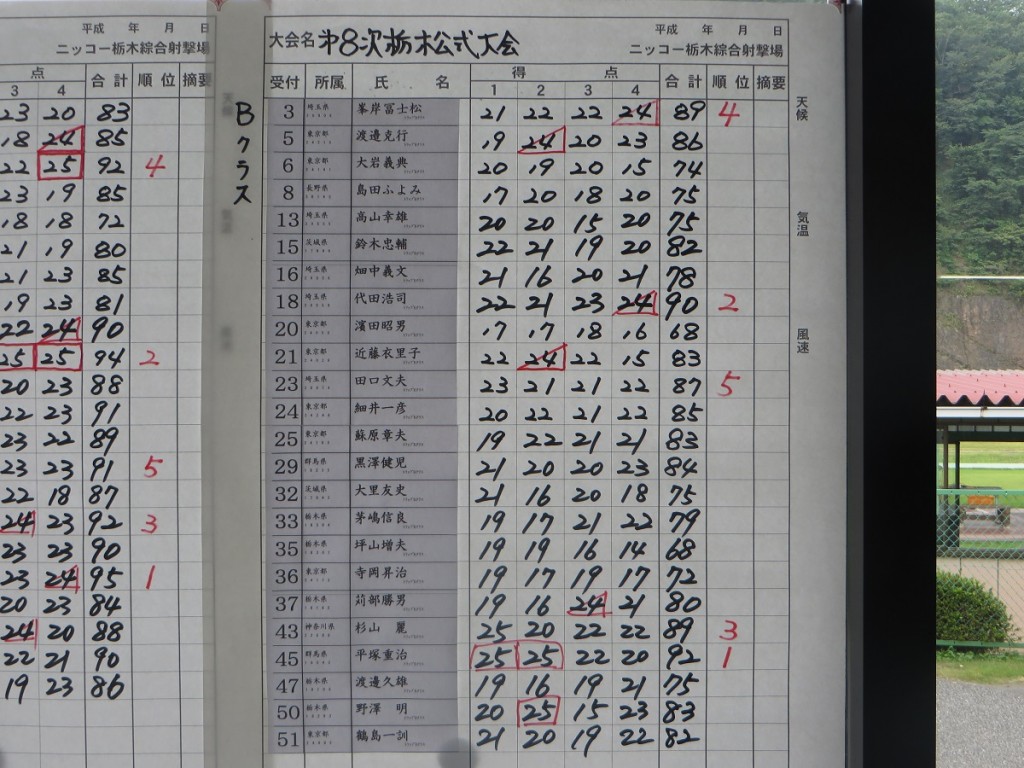 平成 年 月 日
ニッコー栃木綜合射撃場
点 合計 順位 摘要
3 4
23 20 83
18 24 85
22 25 92 4
23 19 85
18 18 72
21 19 80
21 23 85
19 23 81
22 24 90
25 25 94 2
20 23 88
22 23 91
23 22 89
23 23 91 5
22 18 87
24 23 92 3
23 23 90
23 24 95 1
20 23 84
24 20 88
22 21 90
19 23 86
Bクラス
平成 年 月 日
大会名 第8次栃木公式大会 ニッコー栃木綜合射撃場
受付 所属 氏 名 得 点 合計 順位 摘要
1 2 3 4
3 埼玉県 峯岸冨士松 21 22 22 24 89 4
5 東京都 渡邉克行 19 24 20 23 86
6 東京都 大岩義典 20 19 20 15 74
8 長野県 島田ふよみ 17 20 18 20 75
13 埼玉県 高山幸雄 20 20 15 20 75
15 茨城県 鈴木忠輔 22 21 19 20 82
16 埼玉県 畑中義文 21 16 20 21 78
18 埼玉県 代田浩司 22 21 23 24 90 2
20 東京都 濱田昭男 17 17 18 16 68
21 東京都 近藤衣里子 22 24 22 15 83
23 埼玉県 田口文夫 23 21 21 22 87 5
24 東京都 細井一彦 20 22 21 22 85
25 東京都 蘇原章夫 19 22 21 21 83
29 群馬県 黒澤健児 21 20 20 23 84
32 茨城県 大里友史 21 16 20 18 75
33 栃木県 茅嶋信良 19 17 21 22 79
35 栃木県 坪山増夫 19 19 16 14 68
36 東京都 寺岡昇治 19 17 19 17 72
37 栃木県 苅部勝男 19 16 24 21 80
43 神奈川県 杉山 麗 25 20 22 22 89 3
45 群馬県 平塚重治 25 25 22 20 92 1
47 栃木県 渡邊久雄 19 16 19 21 75
50 栃木県 野澤 明 20 25 15 23 83
51 東京都 鶴島一訓 21 20 19 22 82
天候
気温
風速